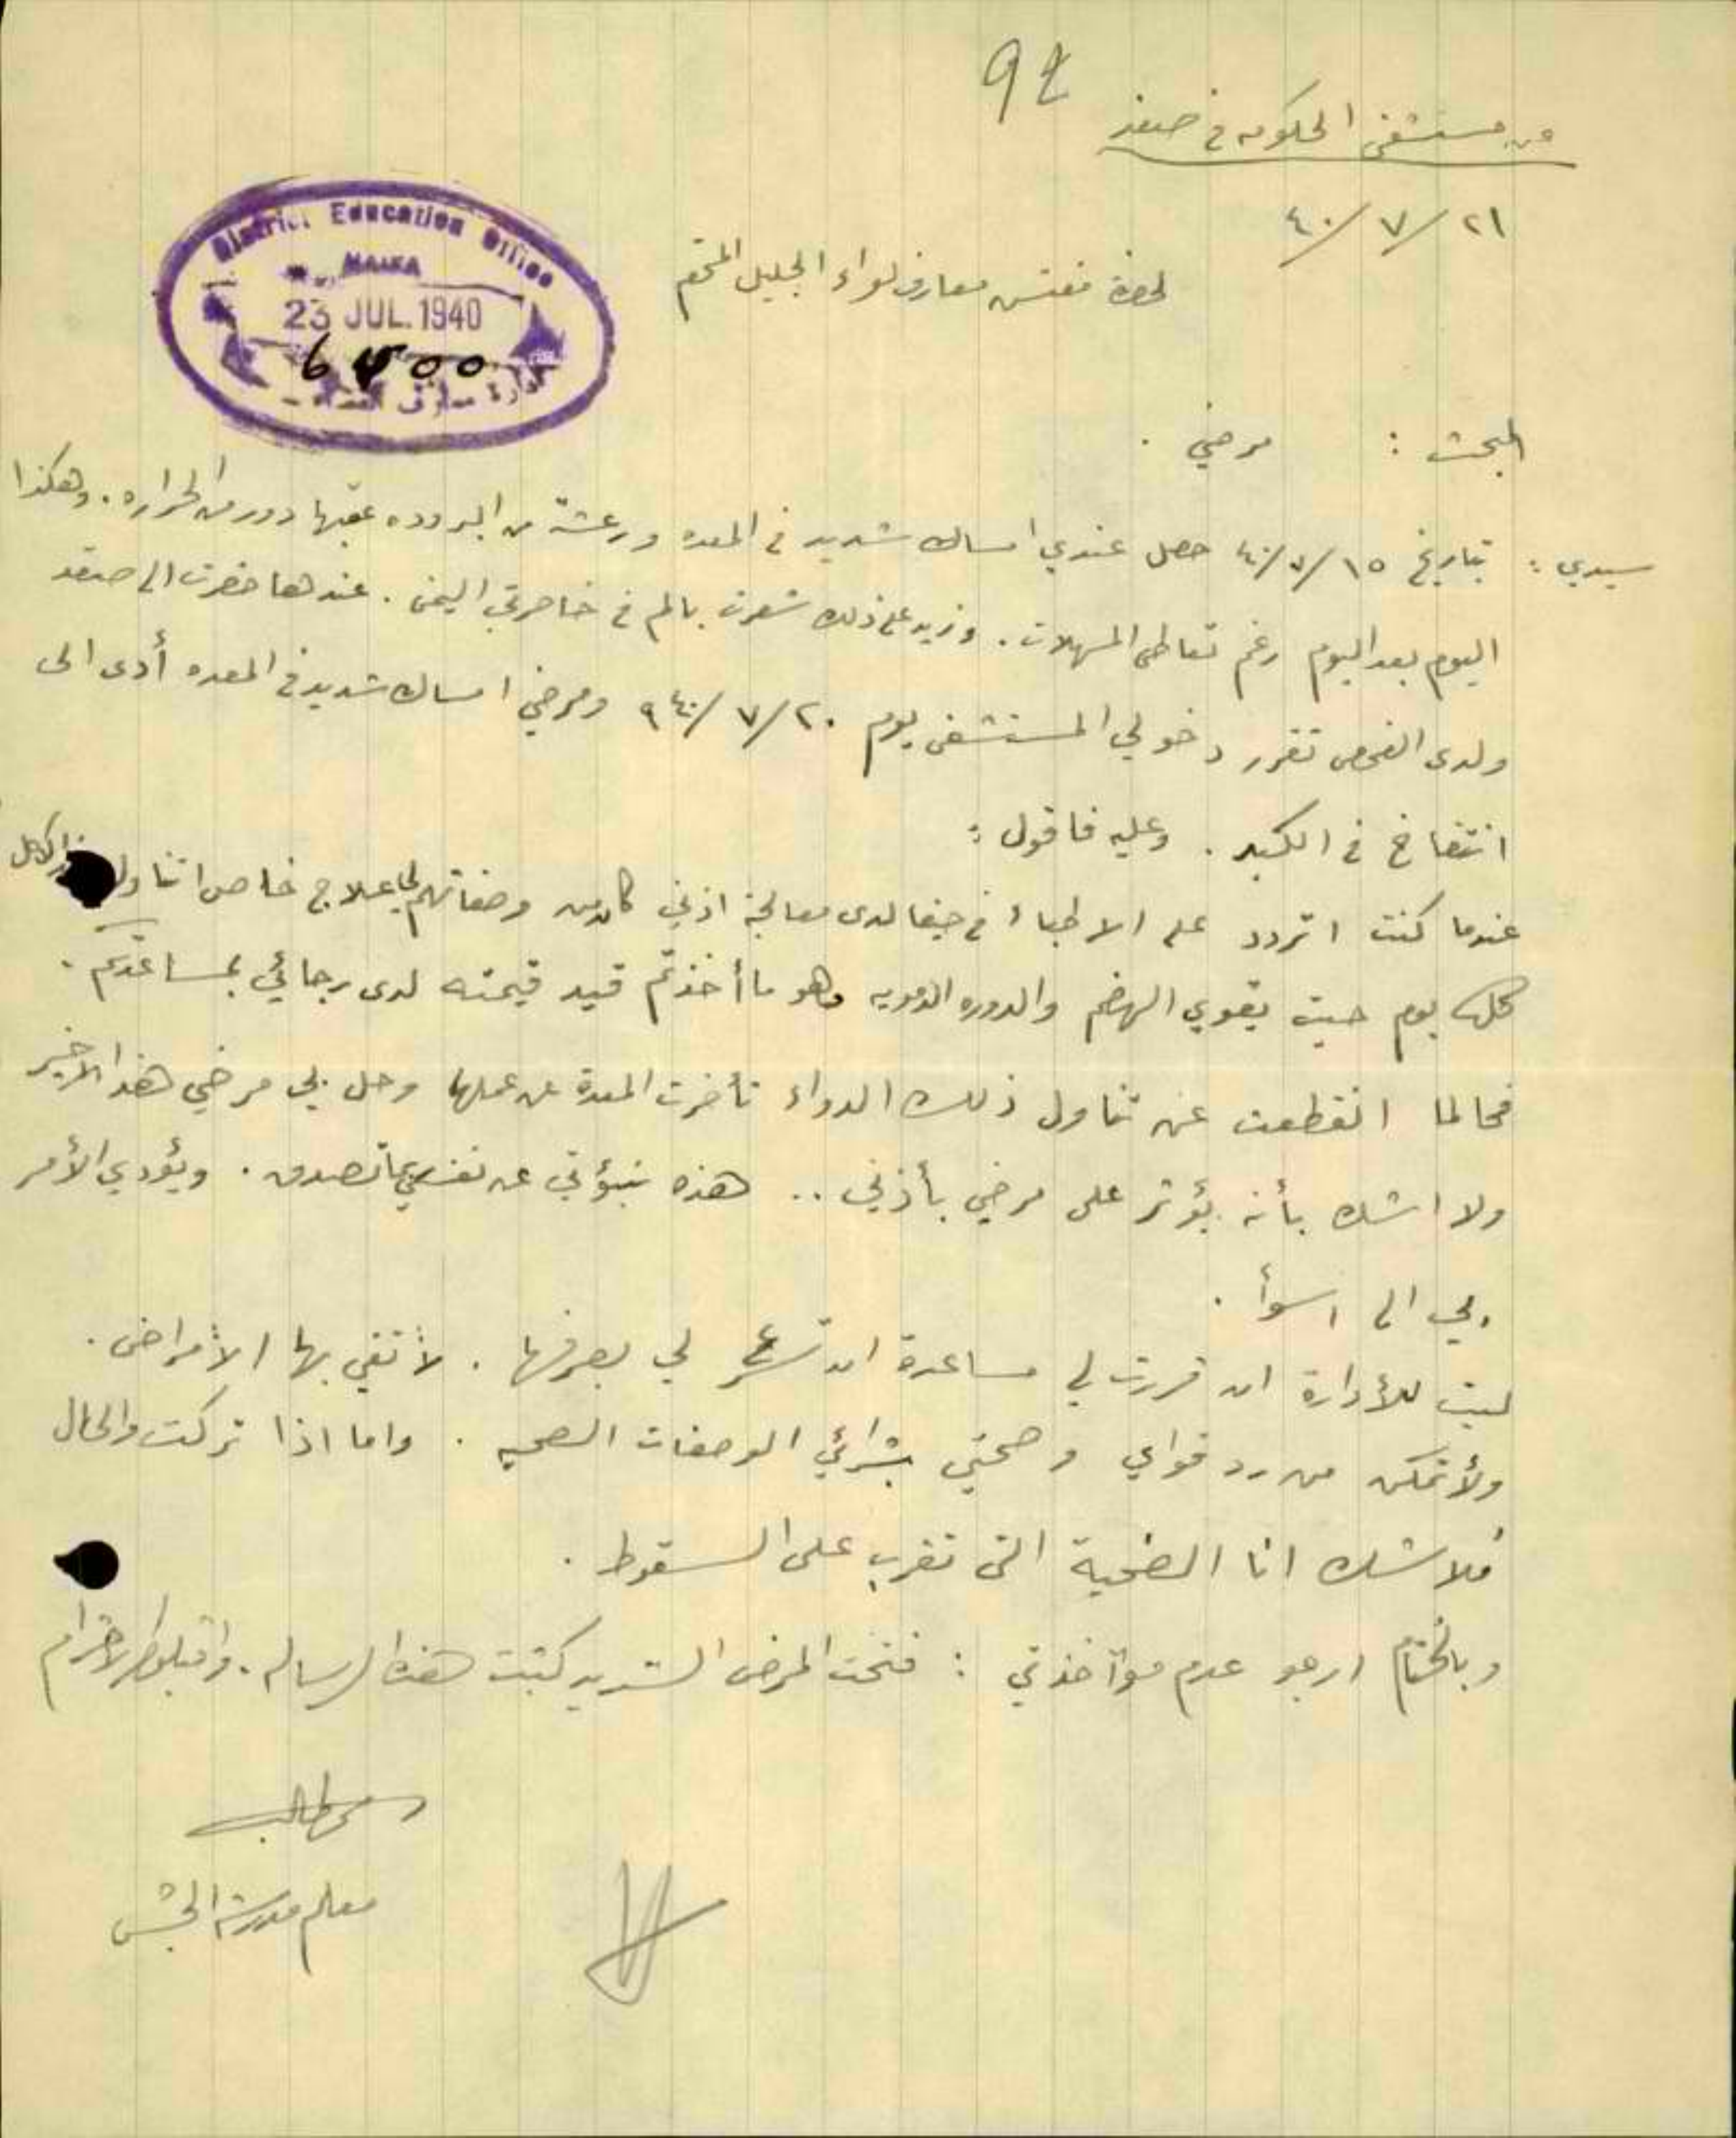 92
من مستشفى الحكومه في صفد
٢١/٧/٤٠
District Education Office
HAIFA
23 JUL. 1940
6400
لحضرة مفتش معارف لواء الجليل المحترم
المبحث : مرضي .
سيدي : بتاريخ ١٥/٧/٤٠ حصل عندي امساك شديد في المعده ورعشة من البروده عقبها دور من الحراره . وهكذا
اليوم بعد اليوم رغم تعاطي المسهلات . وزيد على ذلك شعرت بالم في خاصرتي اليمنى . عندها حضرت الى صفد
ولدى الفحص تقرر دخولي المستشفى يوم ٢٠/٧/٩٤٠ ومرضي امساك شديد في المعده أدى الى
انتفاخ في الكبد . وعليه فاقول :
عندما كنت اتردد على الاطباء في حيفا لدى معالجة اذني كان من وصفاتهم لي علاج خاص اتناوله الاكل
كل يوم حيث يقوي الهضم والدوره الدمويه وهو ما أخذتم قيد قيمته لدى رجائي بمساعدتكم .
فحالما انقطعت عن تناول ذلك الدواء تأخرت المعدة عن عملها وحل بي مرضي هذا الاخير
ولا اشك بأنه يؤثر على مرضي بأذني .. هذه نبؤتي عن نفسي تصدق . ويؤدي الأمر
بي الى اسوأ .
ليت للأدارة ان قررت لي مساعدة ان تسرع لي بصرفها . لأتقي بها الأمراض .
ولأتمكن من رد قواي وصحتي بشرائي الوصفات الصحيه . واما اذا تركت والحال
فلا شك انا الضحية التي تقرب على السقوط .
وبالختام ارجو عدم مؤآخذتي : فتحت المرض الشديد كتبت هذه الرساله . واقبلوا الاحترام
معلم مدرسة الجش